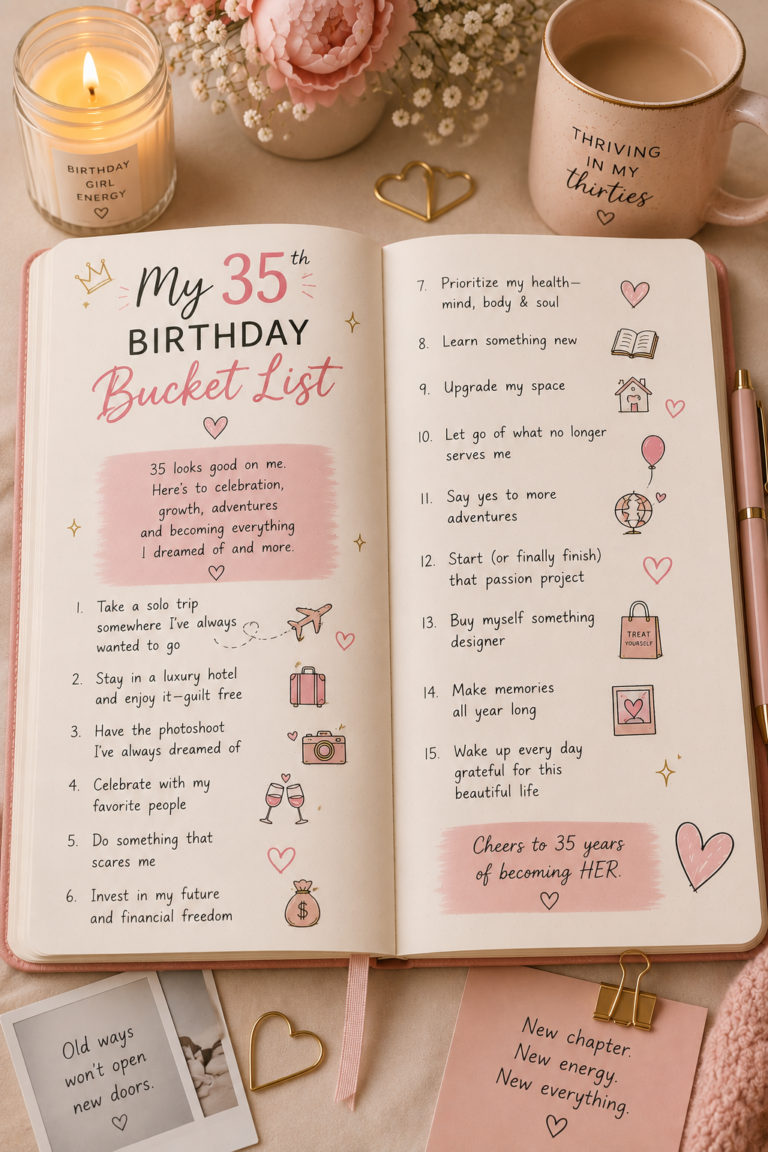 BIRTHDAY
GIRL
ENERGY
THRIVING
IN MY
thirties
My 35th
BIRTHDAY
Bucket List
35 looks good on me.
Here's to celebration,
growth, adventures
and becoming everything
I dreamed of and more.
1. Take a solo trip
somewhere I've always
wanted to go
2. Stay in a luxury hotel
and enjoy it—guilt free
3. Have the photoshoot
I've always dreamed of
4. Celebrate with my
favorite people
5. Do something that
scares me
6. Invest in my future
and financial freedom
$
7. Prioritize my health—
mind, body & soul
8. Learn something new
9. Upgrade my space
10. Let go of what no longer
serves me
11. Say yes to more
adventures
12. Start (or finally finish)
that passion project
13. Buy myself something
designer
TREAT
YOURSELF
14. Make memories
all year long
15. Wake up every day
grateful for this
beautiful life
Cheers to 35 years
of becoming HER.
Old ways
won't open
new doors.
New chapter.
New energy.
New everything.